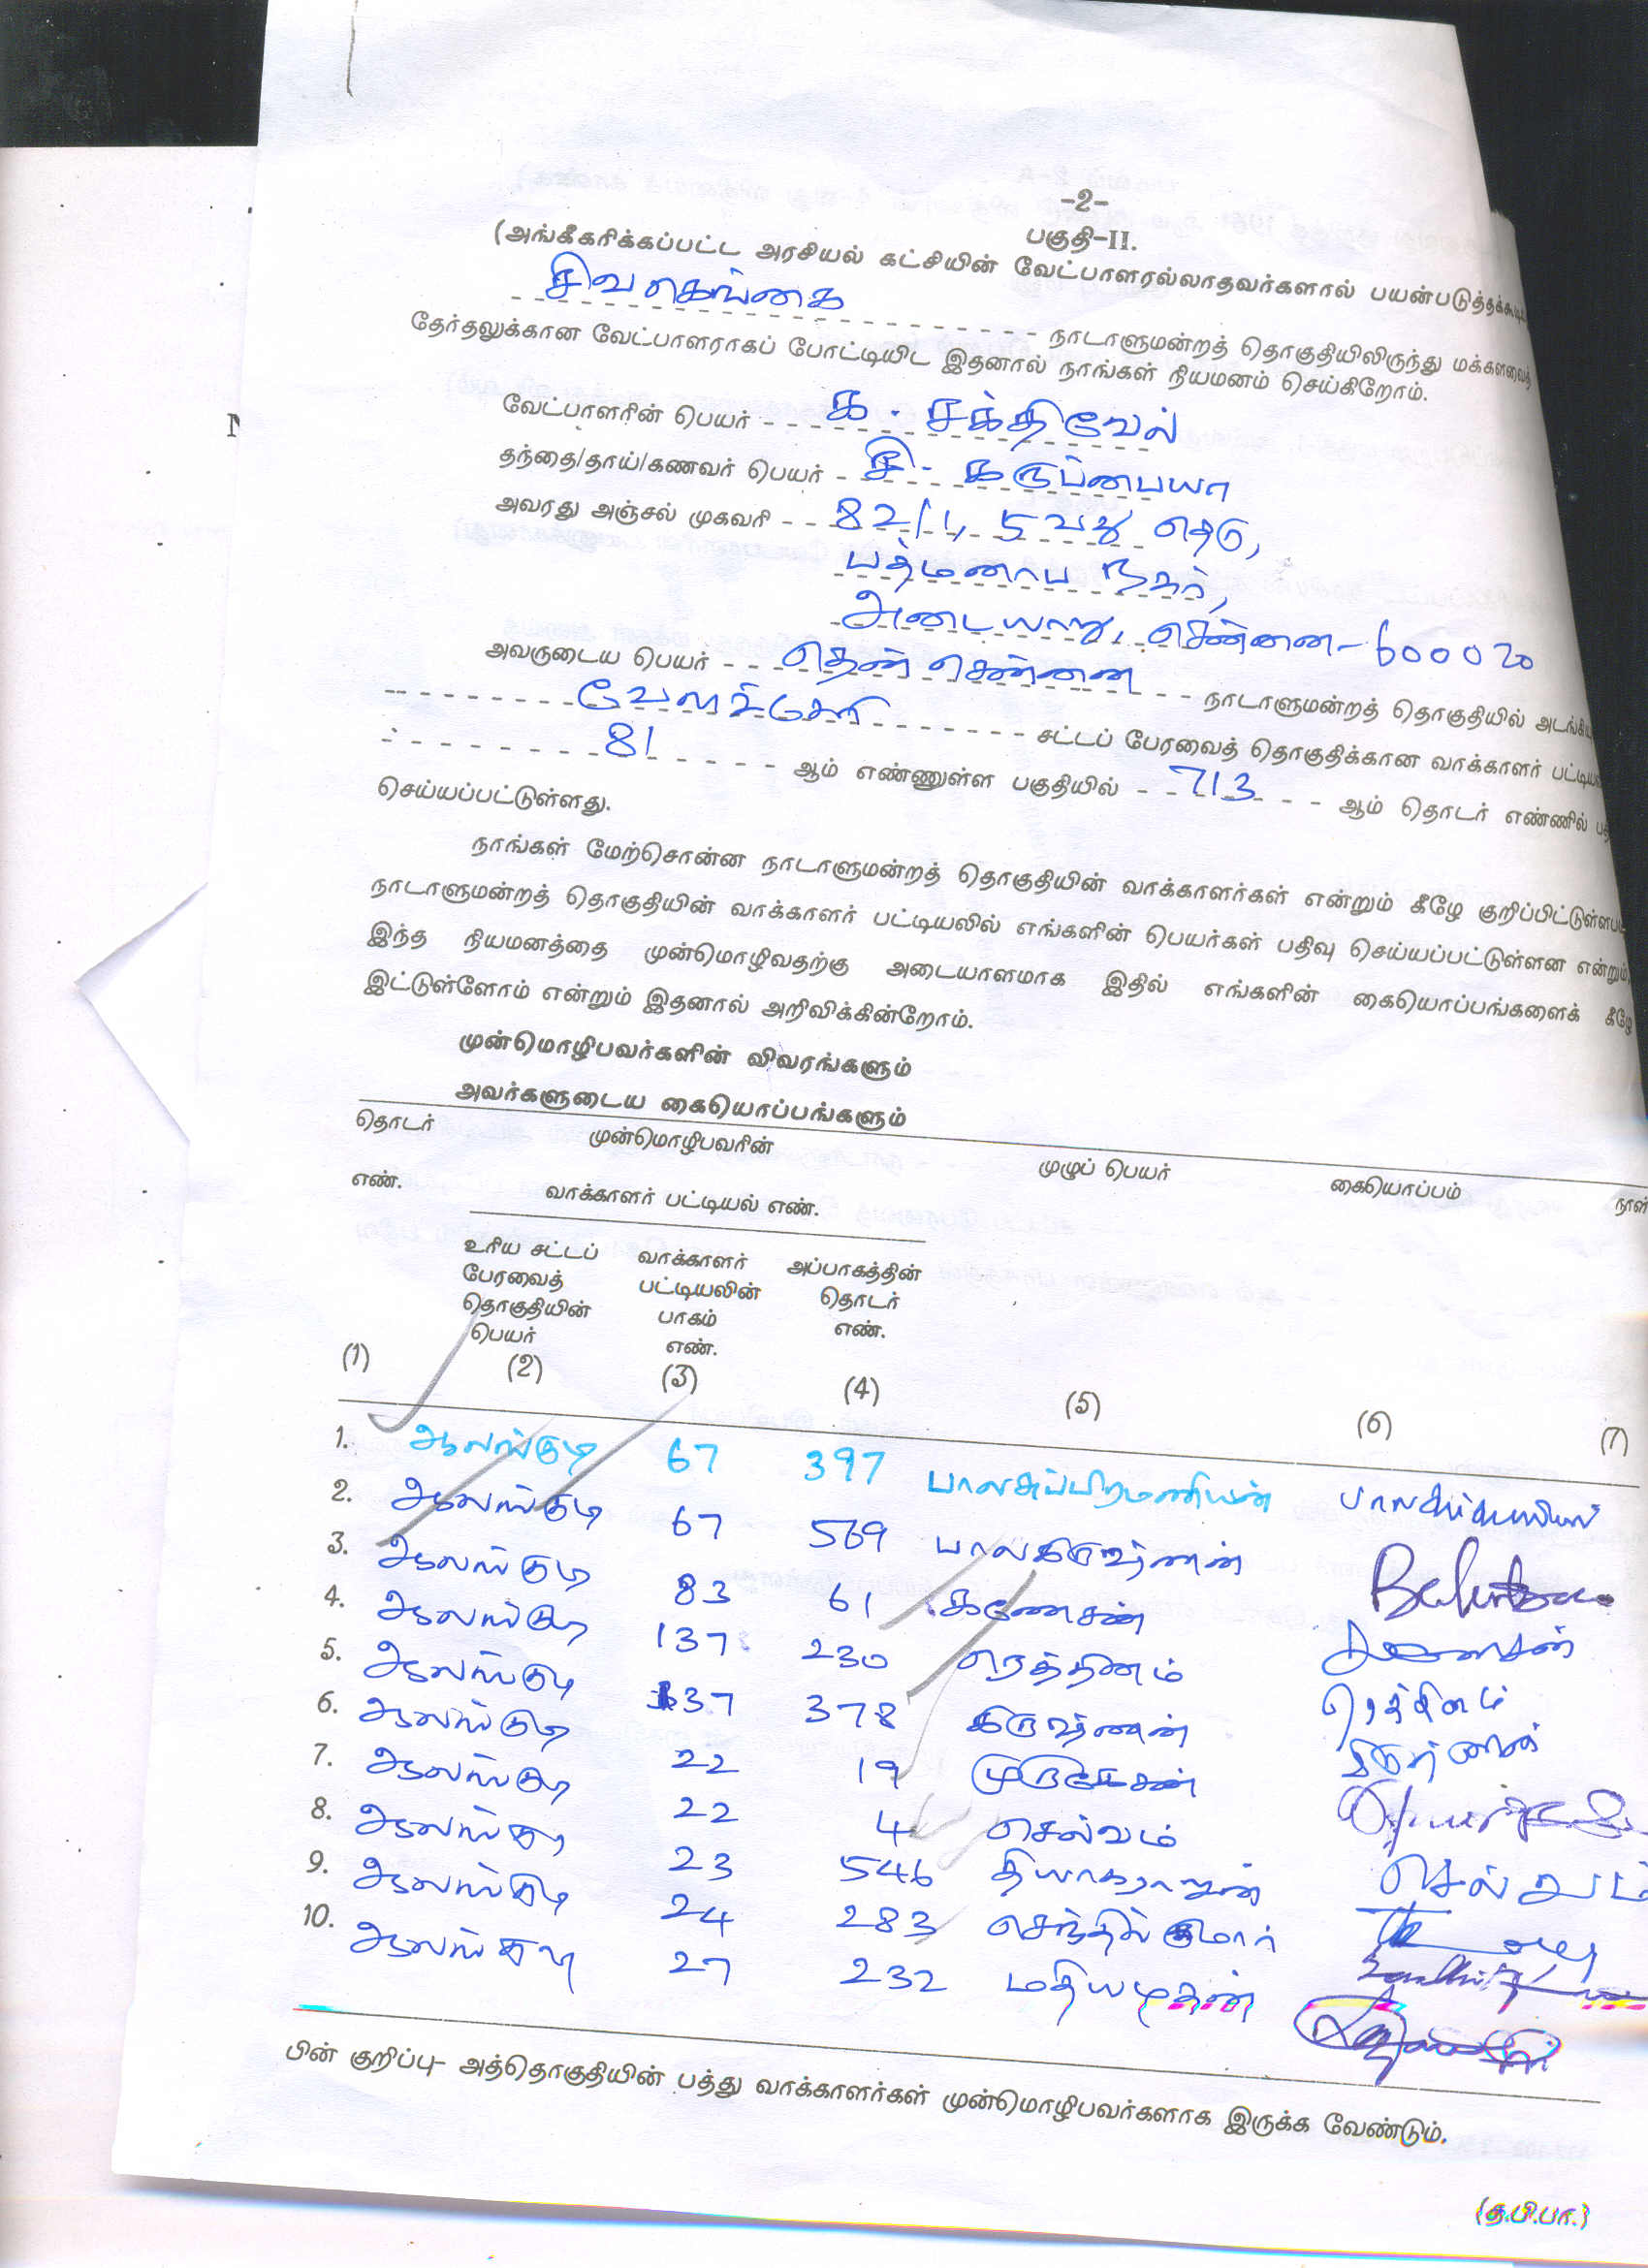 -2-
பகுதி-II.
(அங்கீகரிக்கப்பட்ட அரசியல் கட்சியின் வேட்பாளரல்லாதவர்களால் பயன்படுத்தக்கூடிய
சிவகெங்கை நாடாளுமன்றத் தொகுதியிலிருந்து மக்களவைத்
தேர்தலுக்கான வேட்பாளராகப் போட்டியிட இதனால் நாங்கள் நியமனம் செய்கிறோம்.
வேட்பாளரின் பெயர் - க. சக்திவேல்
தந்தை/தாய்/கணவர் பெயர் - சி. கருப்பையா
அவரது அஞ்சல் முகவரி - 82/1, 5வது தெரு,
பத்மனாப நகர்,
அடையாறு, சென்னை-600020
அவருடைய பெயர் - தென் சென்னை - நாடாளுமன்றத் தொகுதியில் அடங்கிய
வேளச்சேரி சட்டப் பேரவைத் தொகுதிக்கான வாக்காளர்
81 ஆம் எண்ணுள்ள பகுதியில் - 713 - ஆம் தொடர் எண்ணில்
செய்யப்பட்டுள்ளது.
நாங்கள் மேற்சொன்ன நாடாளுமன்றத் தொகுதியின் வாக்காளர்கள் என்றும் கீழே
நாடாளுமன்றத் தொகுதியின் வாக்காளர் பட்டியலில் எங்களின் பெயர்கள் பதிவு செய்யப்பட்டுள்ளன என்றும்,
இந்த நியமனத்தை முன்மொழிவதற்கு அடையாளமாக இதில் எங்களின் கையொப்பங்களைக் கீழே
இட்டுள்ளோம் என்றும் இதனால் அறிவிக்கின்றோம்.
முன்மொழிபவர்களின் விவரங்களும்
அவர்களுடைய கையொப்பங்களும்
தொடர் முன்மொழிபவரின் முழுப் பெயர் கையொப்பம் நாள்
எண். வாக்காளர் பட்டியல் எண்.
உரிய சட்டப் வாக்காளர் அப்பாகத்தின்
பேரவைத் பட்டியலின் தொடர்
தொகுதியின் பாகம் எண்.
பெயர் எண்.
(1) (2) (3) (4) (5) (6) (7)
1. ஆலங்குடி 67 397 பாலசுப்பிரமணியன்
2. ஆலங்குடி 67 569 பாலகிருஷ்ணன்
3. ஆலங்குடி 83 61 கணேசன் கணேசன்
4. ஆலங்குடி 137 230 ரெத்தினம் ரெத்தினம்
5. ஆலங்குடி 137 378 கிருஷ்ணன்
6. ஆலங்குடி 22 19 முருகேசன்
7. ஆலங்குடி 22 4 செல்வம் செல்வம்
8. ஆலங்குடி 23 546 தியாகராஜன்
9. ஆலங்குடி 24 283 செந்தில்குமார்
10. ஆலங்குடி 27 232 மதியழகன்
பின் குறிப்பு- அத்தொகுதியின் பத்து வாக்காளர்கள் முன்மொழிபவர்களாக இருக்க வேண்டும்.
(த.பி.பா.)